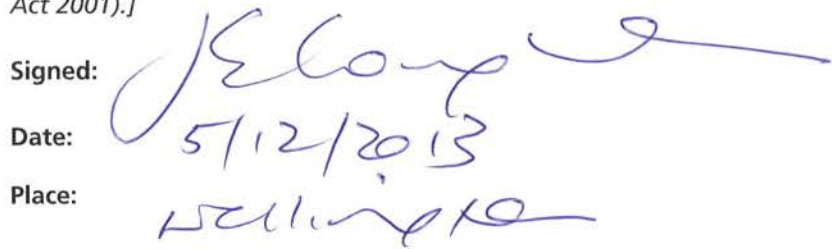 Act 2001).]
Signed:
Date: 5/12/2013
Place: Wellington